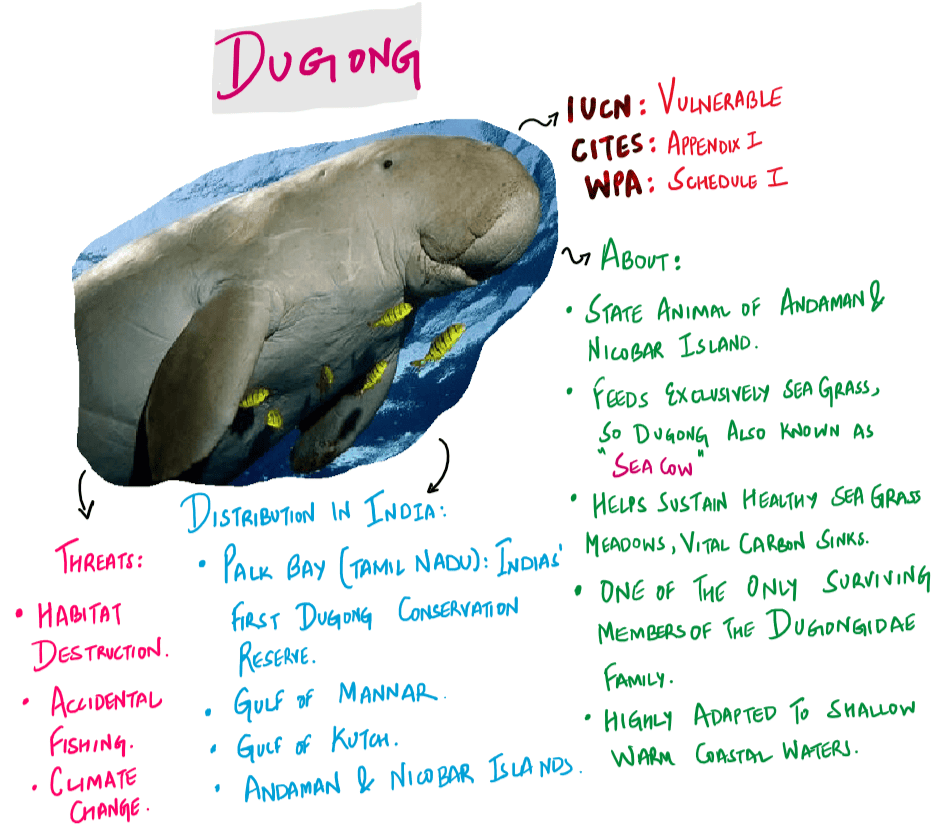 DUGONG
IUCN: VULNERABLE
CITES: APPENDIX I
WPA: SCHEDULE I
ABOUT:
• STATE ANIMAL OF ANDAMAN &
NICOBAR ISLAND.
• FEEDS EXCLUSIVELY SEA GRASS,
SO DUGONG ALSO KNOWN AS
"SEA COW"
• HELPS SUSTAIN HEALTHY SEA GRASS
MEADOWS, VITAL CARBON SINKS.
• ONE OF THE ONLY SURVIVING
MEMBERS OF THE DUGONGIDAE
FAMILY.
• HIGHLY ADAPTED TO SHALLOW
WARM COASTAL WATERS.
DISTRIBUTION IN INDIA:
• PALK BAY (TAMIL NADU): INDIAS'
FIRST DUGONG CONSERVATION
RESERVE.
• GULF OF MANNAR.
• GULF OF KUTCH.
• ANDAMAN & NICOBAR ISLANDS.
THREATS:
• HABITAT
DESTRUCTION.
• ACCIDENTAL
FISHING.
• CLIMATE
CHANGE.